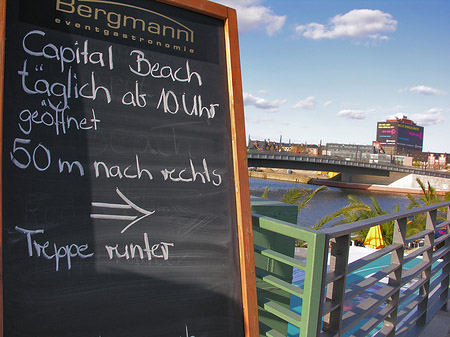 Bergmann
eventgastronomie
Capital Beach
täglich ab 10 Uhr
geöffnet
50 m nach rechts
Treppe runter